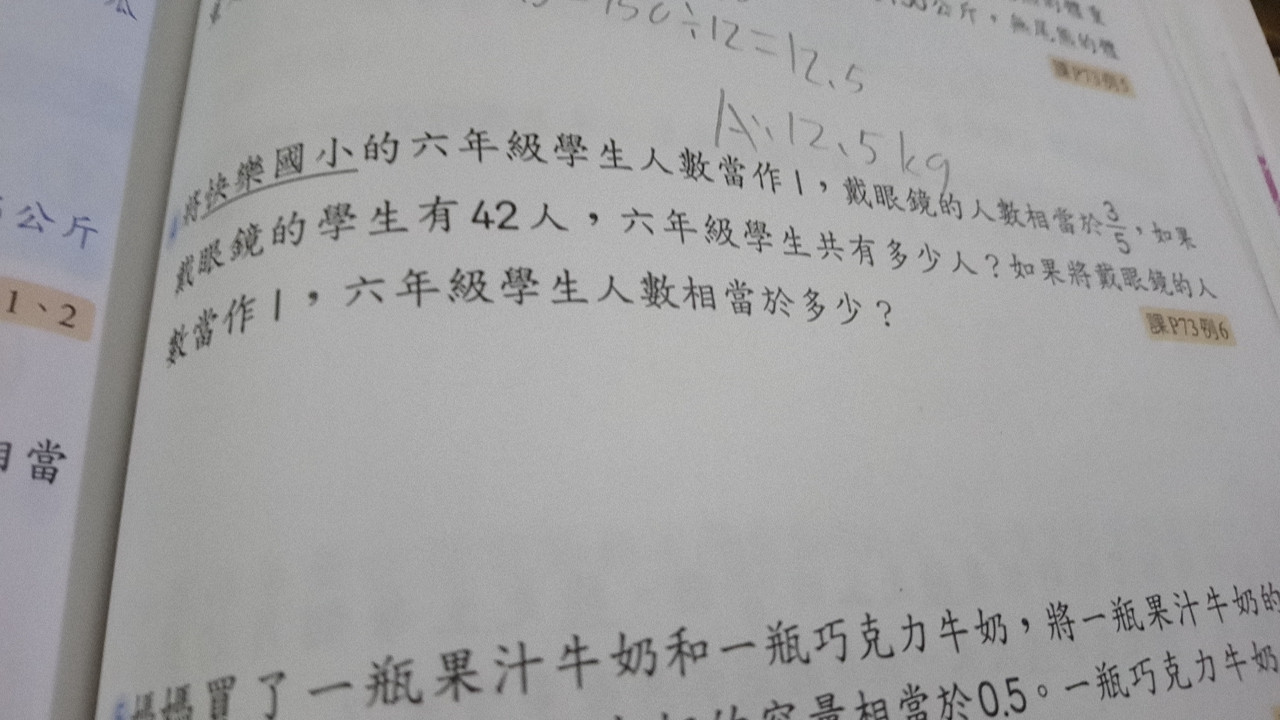 公
150÷12=12.5
公斤,無尾熊的體
課P73例5
A:12.5kg
將快樂國小的六年級學生人數當作1,戴眼鏡的人數相當於3/5,如果
戴眼鏡的學生有42人,六年級學生共有多少人?如果將戴眼鏡的人
數當作1,六年級學生人數相當於多少?
課P73例6
公斤
1、2
當
媽媽買了一瓶果汁牛奶和一瓶巧克力牛奶,將一瓶果汁牛奶的
容量相當於0.5。一瓶巧克力牛奶